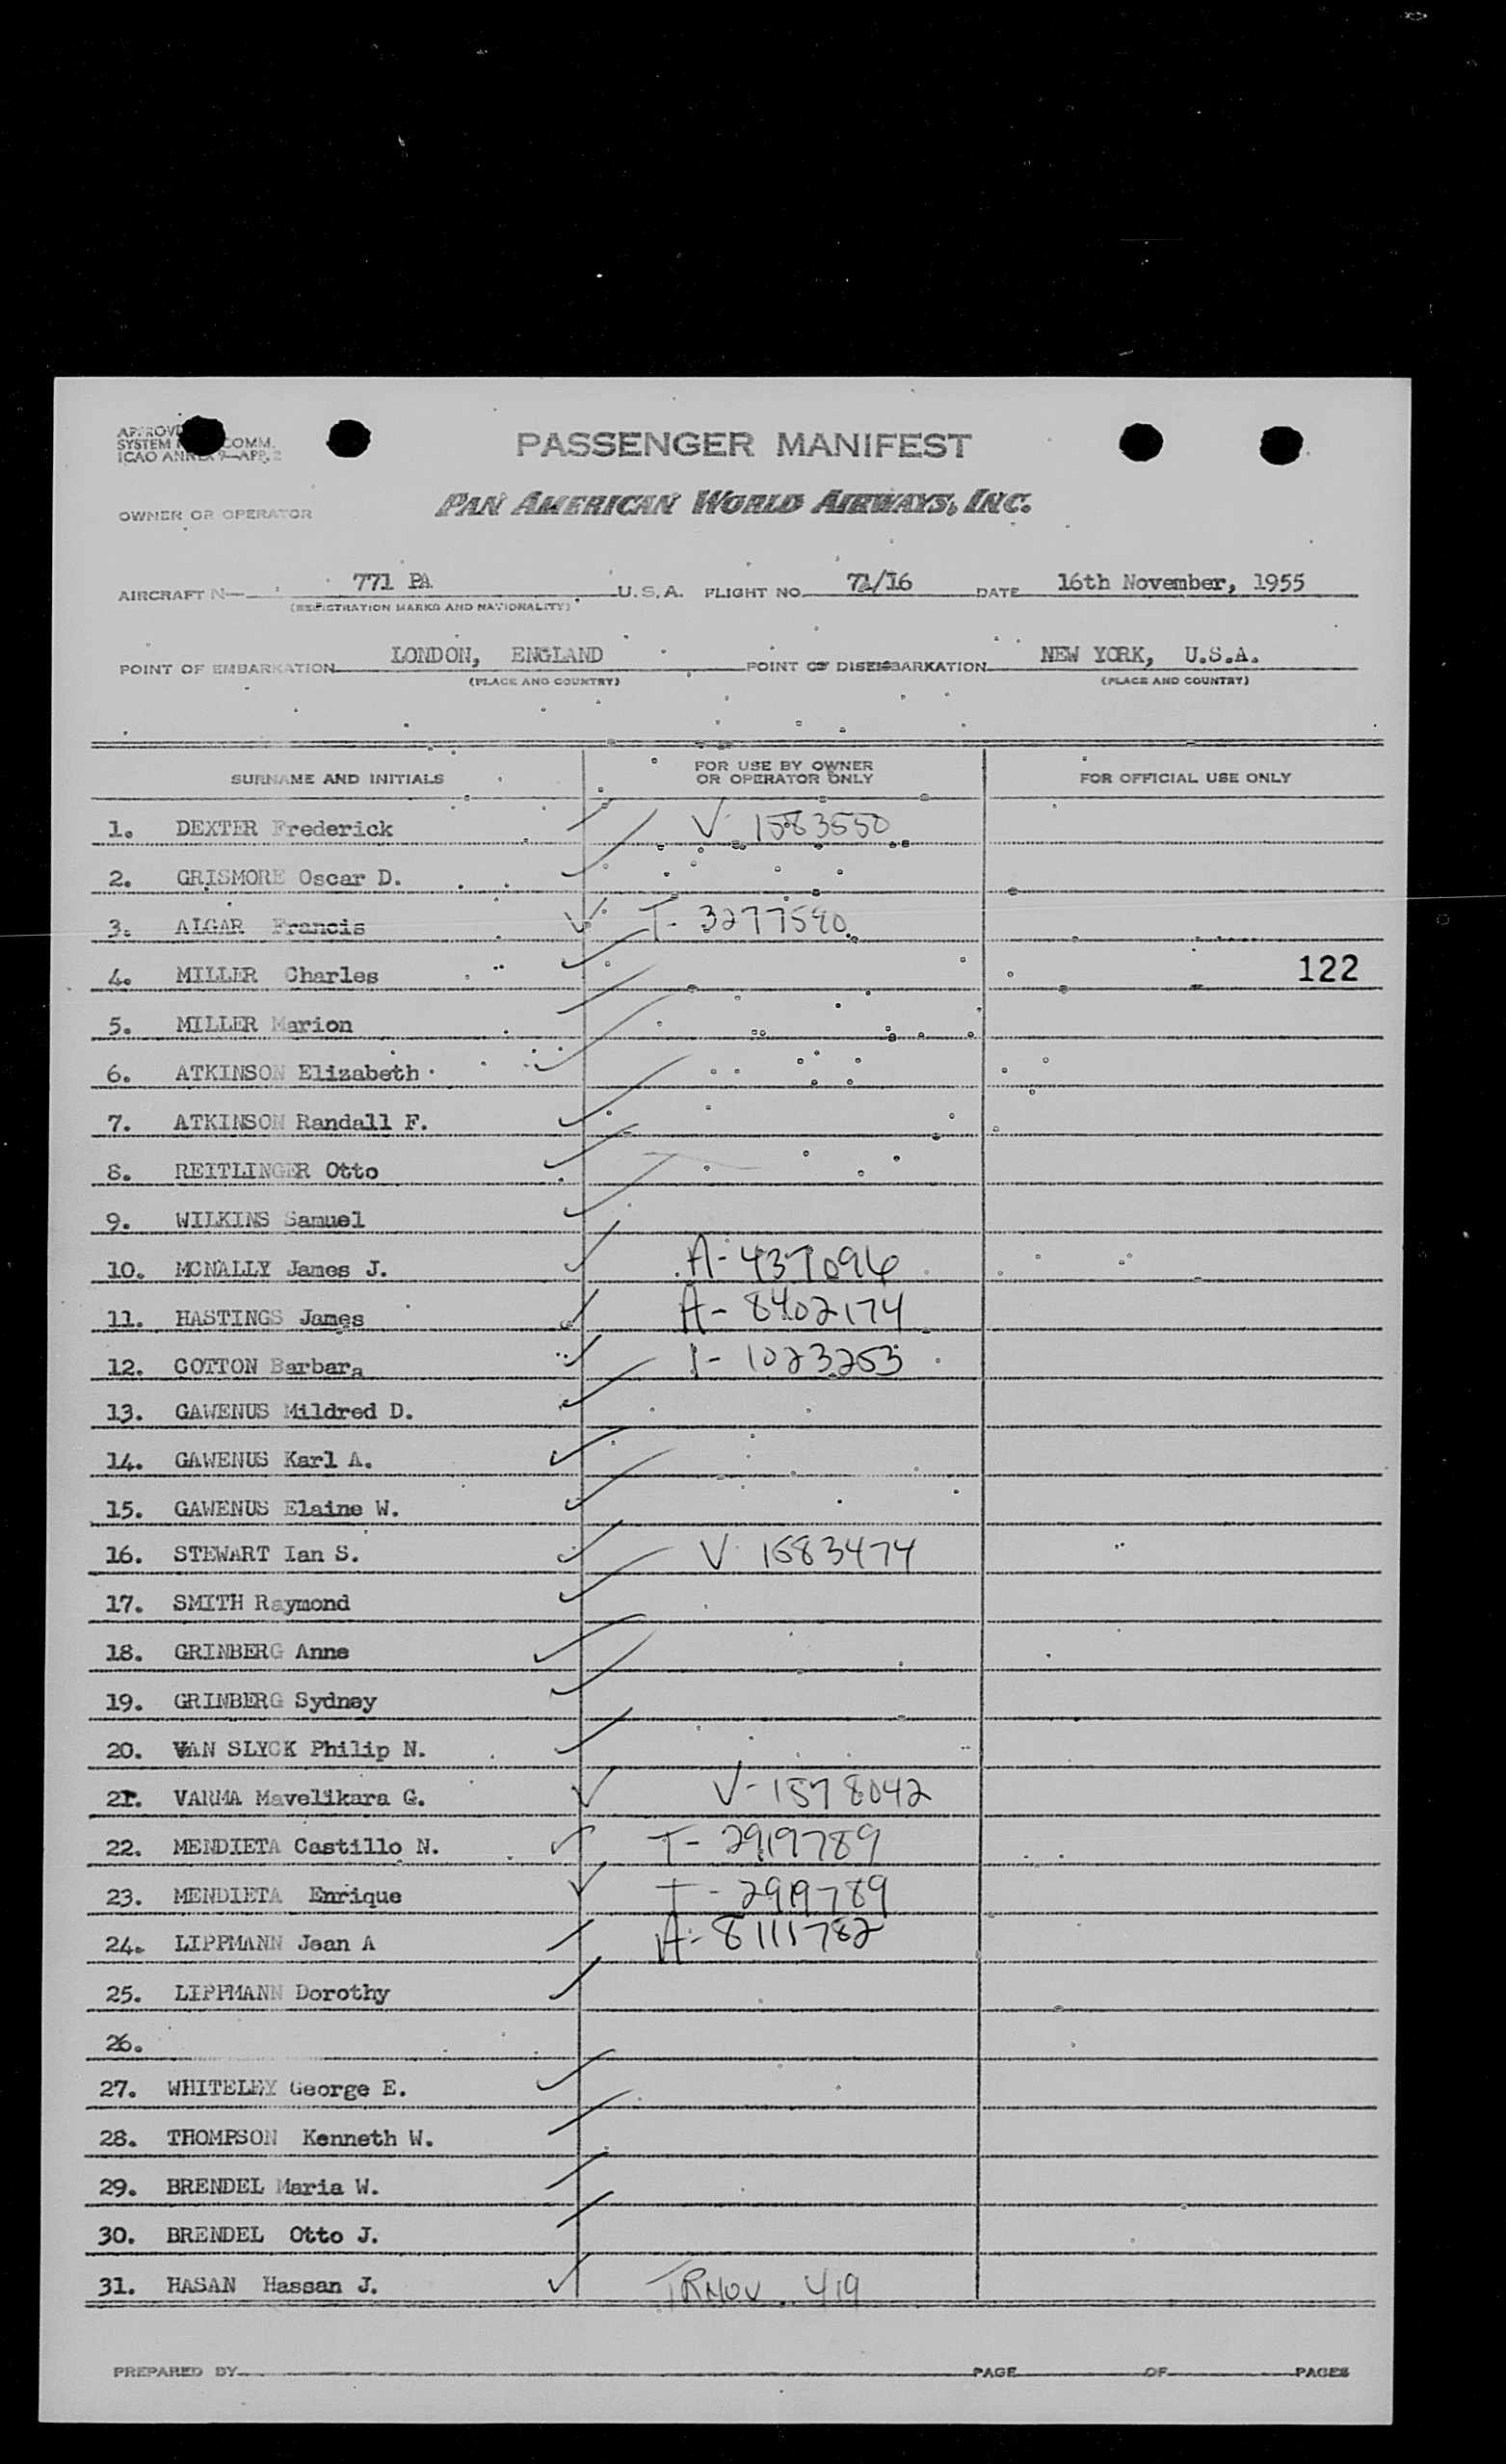 PASSENGER MANIFEST
OWNER OR OPERATOR PAN AMERICAN WORLD AIRWAYS, INC.
AIRCRAFT N 771 PA U.S.A. FLIGHT NO. 71/16 DATE 16th November, 1955
(REGISTRATION MARKS AND NATIONALITY)
POINT OF EMBARKATION LONDON, ENGLAND POINT OF DISEMBARKATION NEW YORK, U.S.A.
(PLACE AND COUNTRY) (PLACE AND COUNTRY)
SURNAME AND INITIALS FOR USE BY OWNER OR OPERATOR ONLY FOR OFFICIAL USE ONLY
1. DEXTER Frederick V- 1583550
2. GRISMORE Oscar D.
3. ALGAR Francis T- 3277590
4. MILLER Charles 122
5. MILLER Marion
6. ATKINSON Elizabeth
7. ATKINSON Randall F.
8. REITLINGER Otto
9. WILKINS Samuel
10. MCNALLY James J. A-437096
11. HASTINGS James A- 8402174
12. COTTON Barbara 1- 1023253
13. GAWENUS Mildred D.
14. GAWENUS Karl A.
15. GAWENUS Elaine W.
16. STEWART Ian S. V- 1583474
17. SMITH Raymond
18. GRINBERG Anne
19. GRINBERG Sydney
20. VAN SLYCK Philip N.
21. VARMA Mavelikara G. V-1578042
22. MENDIETA Castillo N. T- 2919789
23. MENDIETA Enrique T-2919789
24. LIPPMANN Jean A A-8111782
25. LIPPMANN Dorothy
26.
27. WHITELEY George E.
28. THOMPSON Kenneth W.
29. BRENDEL Maria W.
30. BRENDEL Otto J.
31. HASAN Hassan J. TRNOV 419
PREPARED BY PAGE OF PAGES